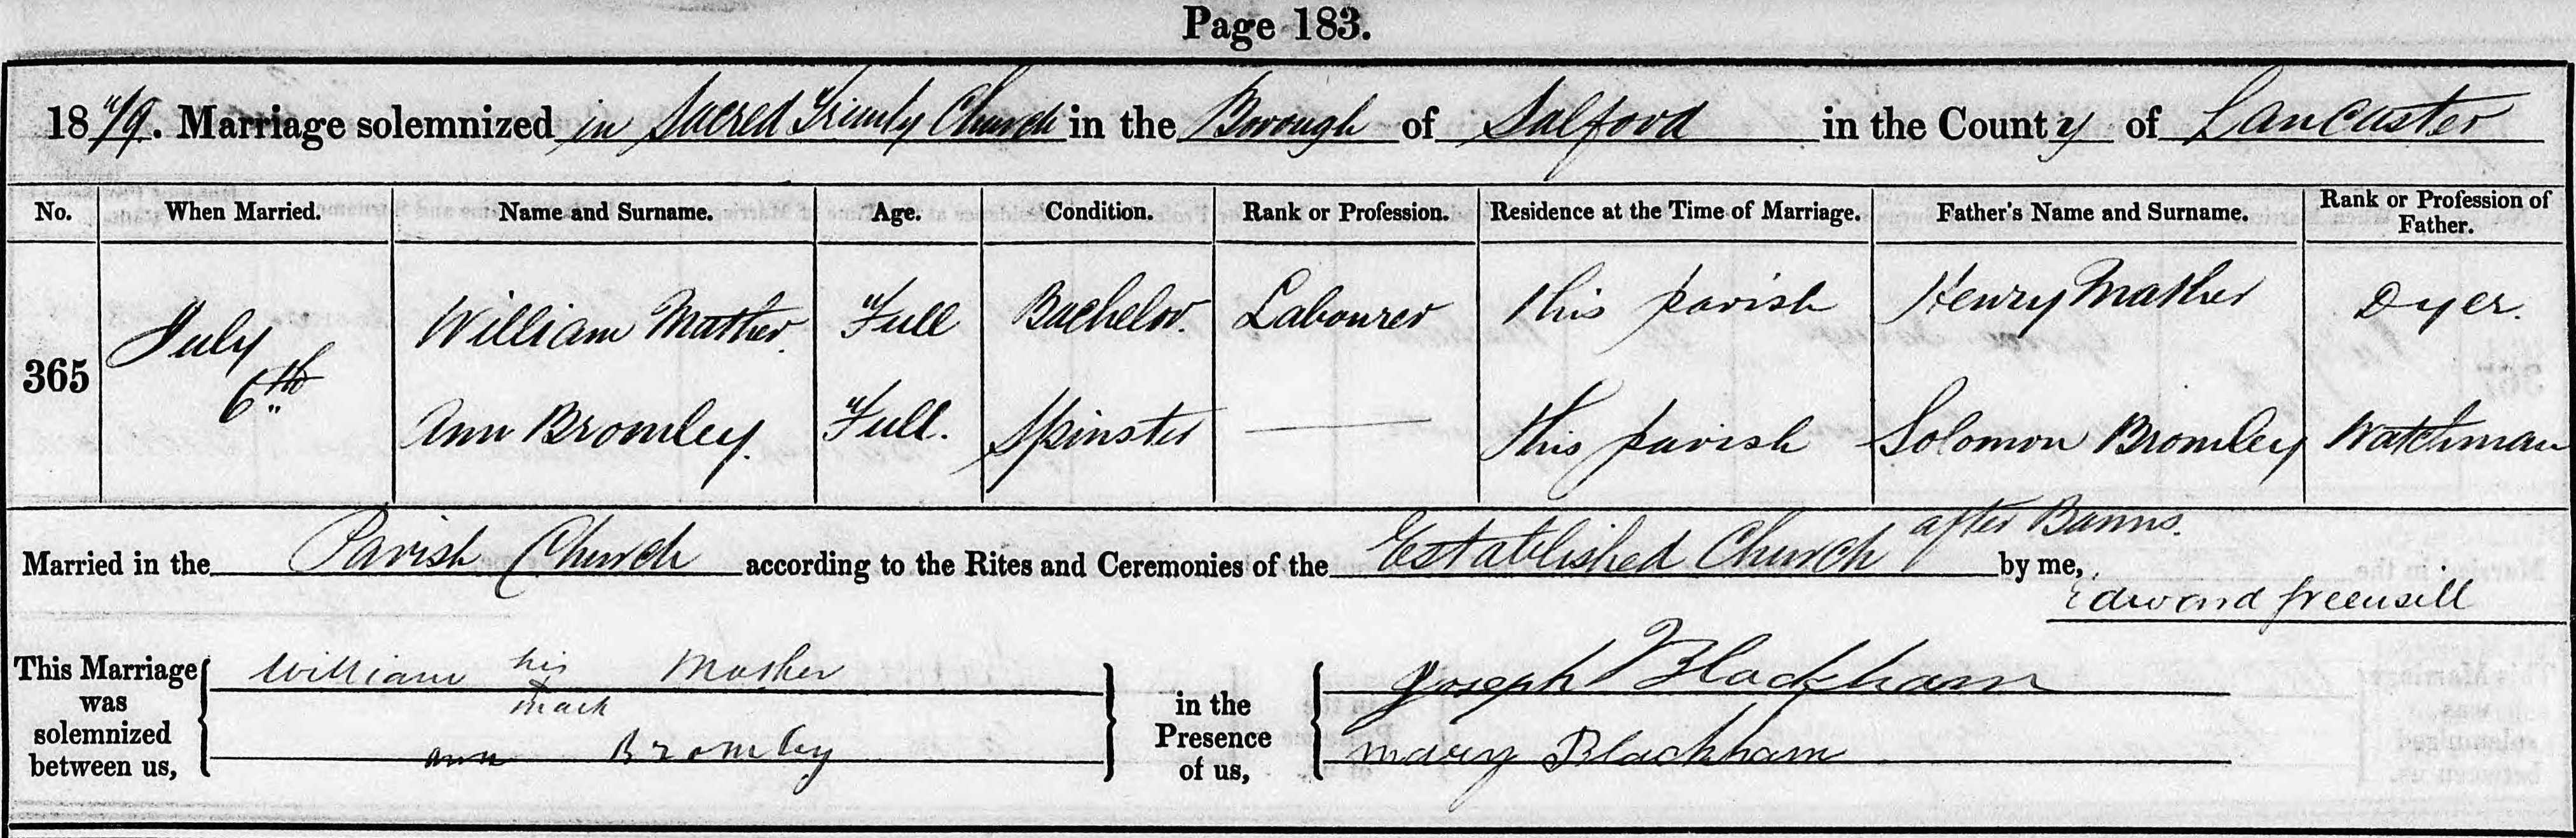 Page 183.
1879. Marriage solemnized in Sacred Trinity Church in the Borough of Salford in the County of Lancaster
No. When Married. Name and Surname. Age. Condition. Rank or Profession. Residence at the Time of Marriage. Father's Name and Surname. Rank or Profession of Father.
365 July 6th William Mather. Full Bachelor. Labourer this parish Henry Mather Dyer.
Ann Bromley. Full. Spinster — this parish Solomon Bromley Watchman
Married in the Parish Church according to the Rites and Ceremonies of the Established Church after Banns. by me,
Edward Greensill
This Marriage was solemnized between us, William his x mark Mather
ann Bromley
in the Presence of us, Joseph Blackham
mary Blackham